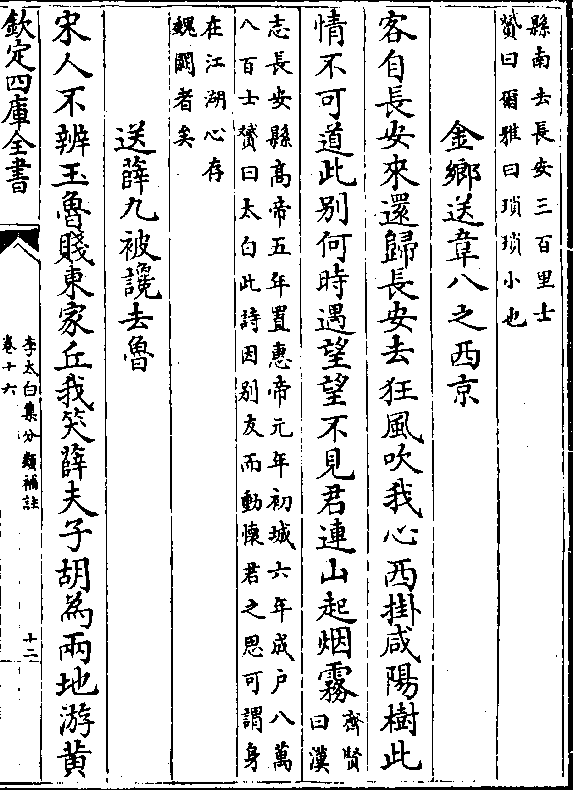 縣南去長安三百里士
贇曰爾雅曰瑣瑣小也
金鄉送韋八之西京
客自長安來還歸長安去狂風吹我心西掛咸陽樹此
情不可道此别何時遇望望不見君連山起烟霧
齊賢
曰漢
志長安縣髙帝五年置惠帝元年初城六年成户八萬
八百士贇曰太白此詩因别友而動懷君之思可謂身
在江湖心存
魏闕者矣
送薛九被讒去魯
宋人不辨玉魯賤東家丘我笑薛夫子胡為兩地游黄
欽定四庫全書
李太白集分類補註
卷十六
十二